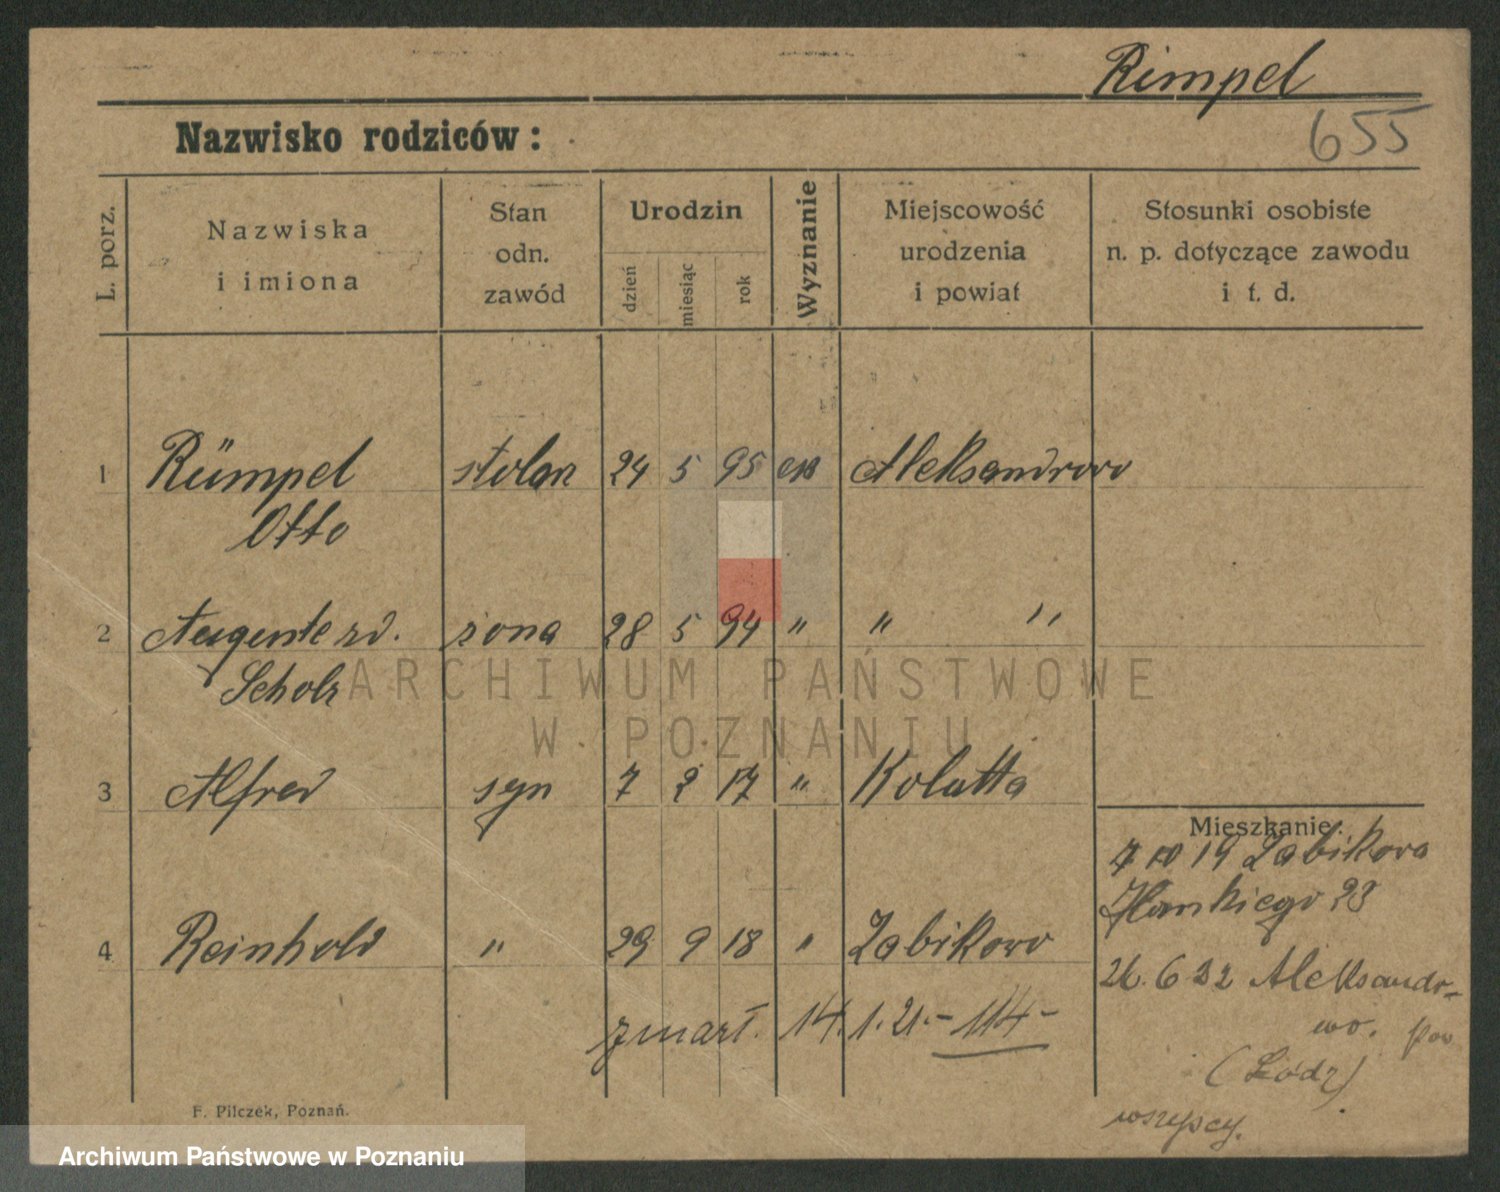 Rimpel
655
Nazwisko rodziców:
L. porz.
Nazwiska
i imiona
Stan
odn.
zawód
Urodzin
dzień
miesiąc
rok
Wyznanie
Miejscowość
urodzenia
i powiat
Stosunki osobiste
n. p. dotyczące zawodu
i t. d.
1 Rümpel stolarz 24 5 95 Aleksandrowo
Otto
2 żona 28 5 94 " " "
Scholz
3 Alfred syn 7 2 17 " Kolatta
4 Reinhold " 29 9 18 " Żabikowo
zmarł. 14. 1. 21.- 114-
Mieszkanie:
7 10 19 Żabikowo
23
26. 6 32 Aleksandro-
wo. pow
(Łódz)
wszyscy.
F. Pilczek, Poznań.
ARCHIWUM PAŃSTWOWE
W POZNANIU
Archiwum Państwowe w Poznaniu